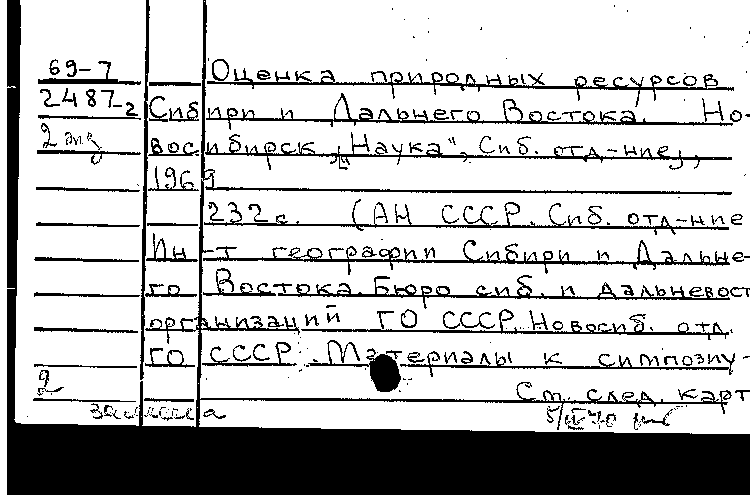 69-7 Оценка природных ресурсов
2487-2 Сибири и Дальнего Востока. Но-
2 экз восибирск, "Наука", Сиб. отд-ние,
1969
232с. (АН СССР. Сиб. отд-ние
Ин-т географии Сибири и Дальне-
го Востока. Бюро сиб. и дальневост
организаций ГО СССР. Новосиб. отд.
ГО СССР. Материалы к симпозиу-
2 См. след. карт
5/IX 70